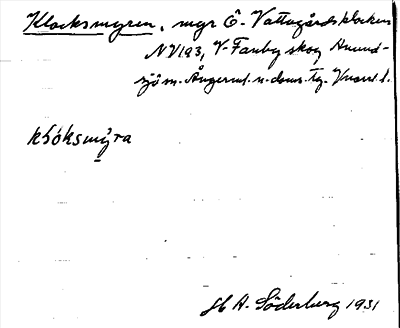 Klocksmyren, myr Ö. Vattagårdsklocken
NV193, V. Fanby skog Anund-
sjö sn. Ångerml. n. doms. tg. Vnorrl. l.
klóksmỳra
H A. Söderberg 1931